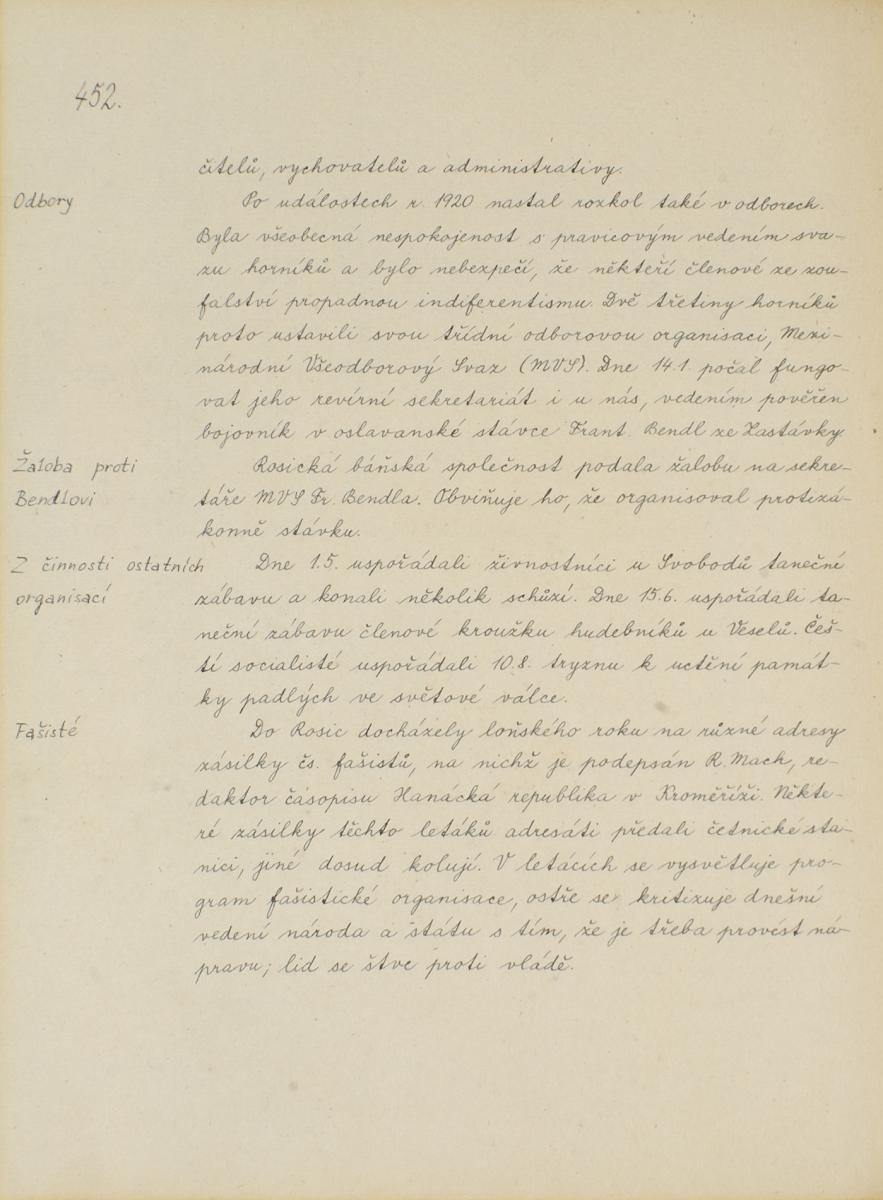 452.
čitelů, vychovatelů a administrativy.
Odbory
Po událostech r. 1920 nastal rozkol také v odborech.
Byla všeobecná nespokojenost s pravicovým vedením sva-
zu horníků a bylo nebezpečí, že někteří členové ze zou-
falství propadnou indiferentismu. Dvě třetiny horníků
proto ustavili svou třídní odborovou organisaci, Mezi-
národní Všeodborový Svaz (MVS). Dne 14.1. počal fungo-
vat jeho revírní sekretariát i u nás, vedením pověřen
bojovník v oslavanské stávce Frant. Bendl ze Zastávky.
Žaloba proti
Bendlovi
Rosická báňská společnost podala žalobu na sekre-
táře MVS Fr. Bendla. Obviňuje ho, že organisoval protizá-
konně stávku.
Z činnosti ostatních
organisací
Dne 1.5. uspořádali živnostníci u Svobodů taneční
zábavu a konali několik schůzí. Dne 15.6. uspořádali ta-
neční zábavu členové kroužku hudebníků u Veselů. Češ-
tí socialisté uspořádali 10.8. tryznu k uctění památ-
ky padlých ve světové válce.
Fašisté
Do Rosic docházely loňského roku na různé adresy
zásilky čs. fašistů, na nichž je podepsán R. Mach, re-
daktor časopisu Hanácká republika v Kroměříži. Někte-
ré zásilky těchto letáků adresáti předali četnické sta-
nici, jiné dosud kolují. V letácích se vysvětluje pro-
gram fašistické organisace, ostře se kritizuje dnešní
vedení národa a státu s tím, že je třeba provést ná-
pravu; lid se štve proti vládě.